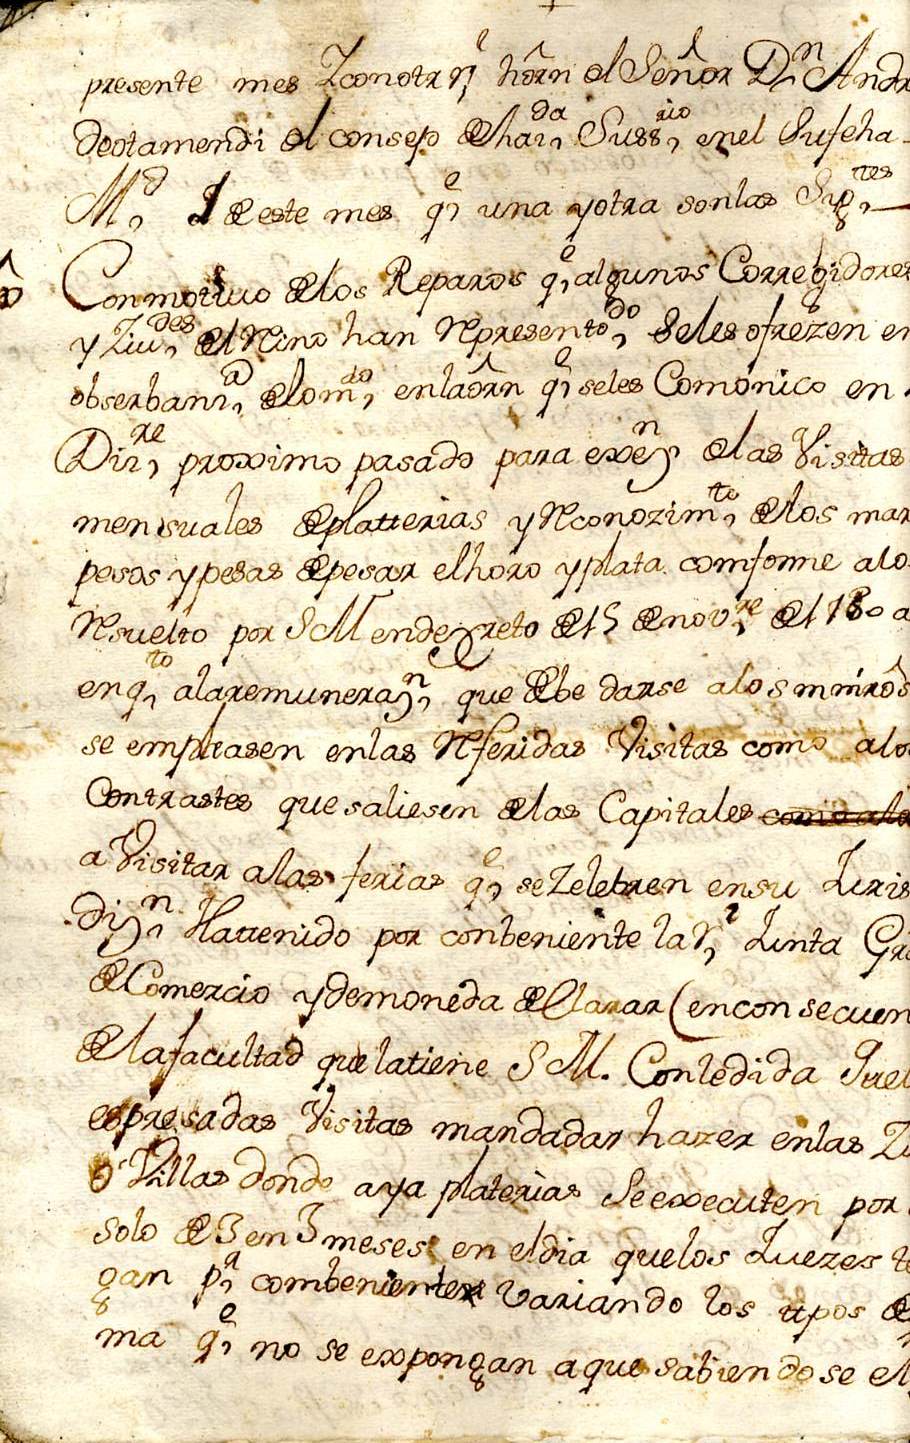 presente mes Zconotr rl horn el Señor Dn Andr
deotamendi el consep de hazda Sussrio enel Sufeha
Md 1 de este mes qe una yotra sonlas Sigtes
Conmotivo delos Reparos qe algunos Corregidores
y Ziudes del Reino han Representdo Seles ofrezen en
obserbania delomdo enla orn qe seles Comonico en
Dizre proximo pasado para exen delas Visitas
mensuales de platterias y Reconozimto delos mar
pesos ypesas depesar elhoro yplata comforme alo
Resuelto por SM endecreto del 15 de novre del
enqto alaremunerazn que debe darse alos minros
se empleasen enlas Referidas Visitas como alos
Contrastes que saliesen delas Capitales como alos
a Visitar alas ferias qe seZelebren ensu Juris
dizn Hattenido por conbeniente la rl Junta Gra
de Comercio ydemoneda declarar (enconsecuen
dela facultad quelatiene SM. Conzedida Quel
espresadas Visitas mandadas hazer enlas Zi
o Villas donde aya platerias Seexecuten por
solo de 3 en 3 meses en eldia quelos Juezes te
gan pr combeniente variando los tipos de
ma qe no se expongan aque sabiendose el